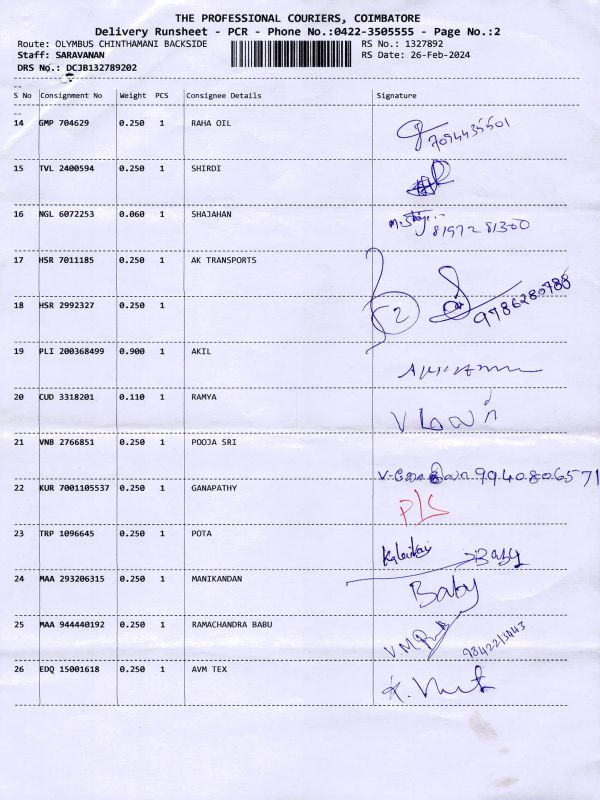 THE PROFESSIONAL COURIERS, COIMBATORE
Delivery Runsheet - PCR - Phone No.:0422-3505555 - Page No.:2
Route: OLYMBUS CHINTHAMANI BACKSIDE RS No.: 1327892
Staff: SARAVANAN RS Date: 26-Feb-2024
DRS No.: DCJB132789202
S No Consignment No Weight PCS Consignee Details Signature
14 GMP 704629 0.250 1 RAHA OIL 7094435501
15 TVL 2400594 0.250 1 SHIRDI
16 NGL 6072253 0.060 1 SHAJAHAN 8197281300
17 HSR 7011185 0.250 1 AK TRANSPORTS
2 9786280788
18 HSR 2992327 0.250 1
19 PLI 200368499 0.900 1 AKIL
20 CUD 3318201 0.110 1 RAMYA
21 VNB 2766851 0.250 1 POOJA SRI 9940806571
22 KUR 7001105537 0.250 1 GANAPATHY
23 TRP 1096645 0.250 1 POTA Baby
24 MAA 293206315 0.250 1 MANIKANDAN Baby
25 MAA 944440192 0.250 1 RAMACHANDRA BABU
26 EDQ 15001618 0.250 1 AVM TEX